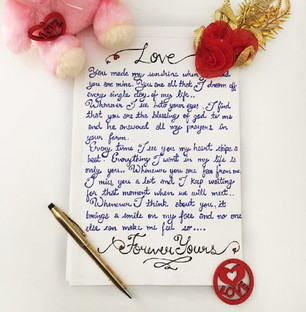 Love
You made my sunshine when I said
you are mine. You are all that I dream off
every single day of my life..
Whenever I see into your eyes. I find
that you are the blessing of god to me
and he answered all my prayers in
your form.
Every time I see you my heart skips a
beat. Everything I want in my life is
only you... Whenever you are far from me
I miss you a lot and I keep waiting
for that moment when we will meet...
Whenever I think about you, it
brings a smile on my face and no one
else can make me feel so....
Forever Yours
LOVE